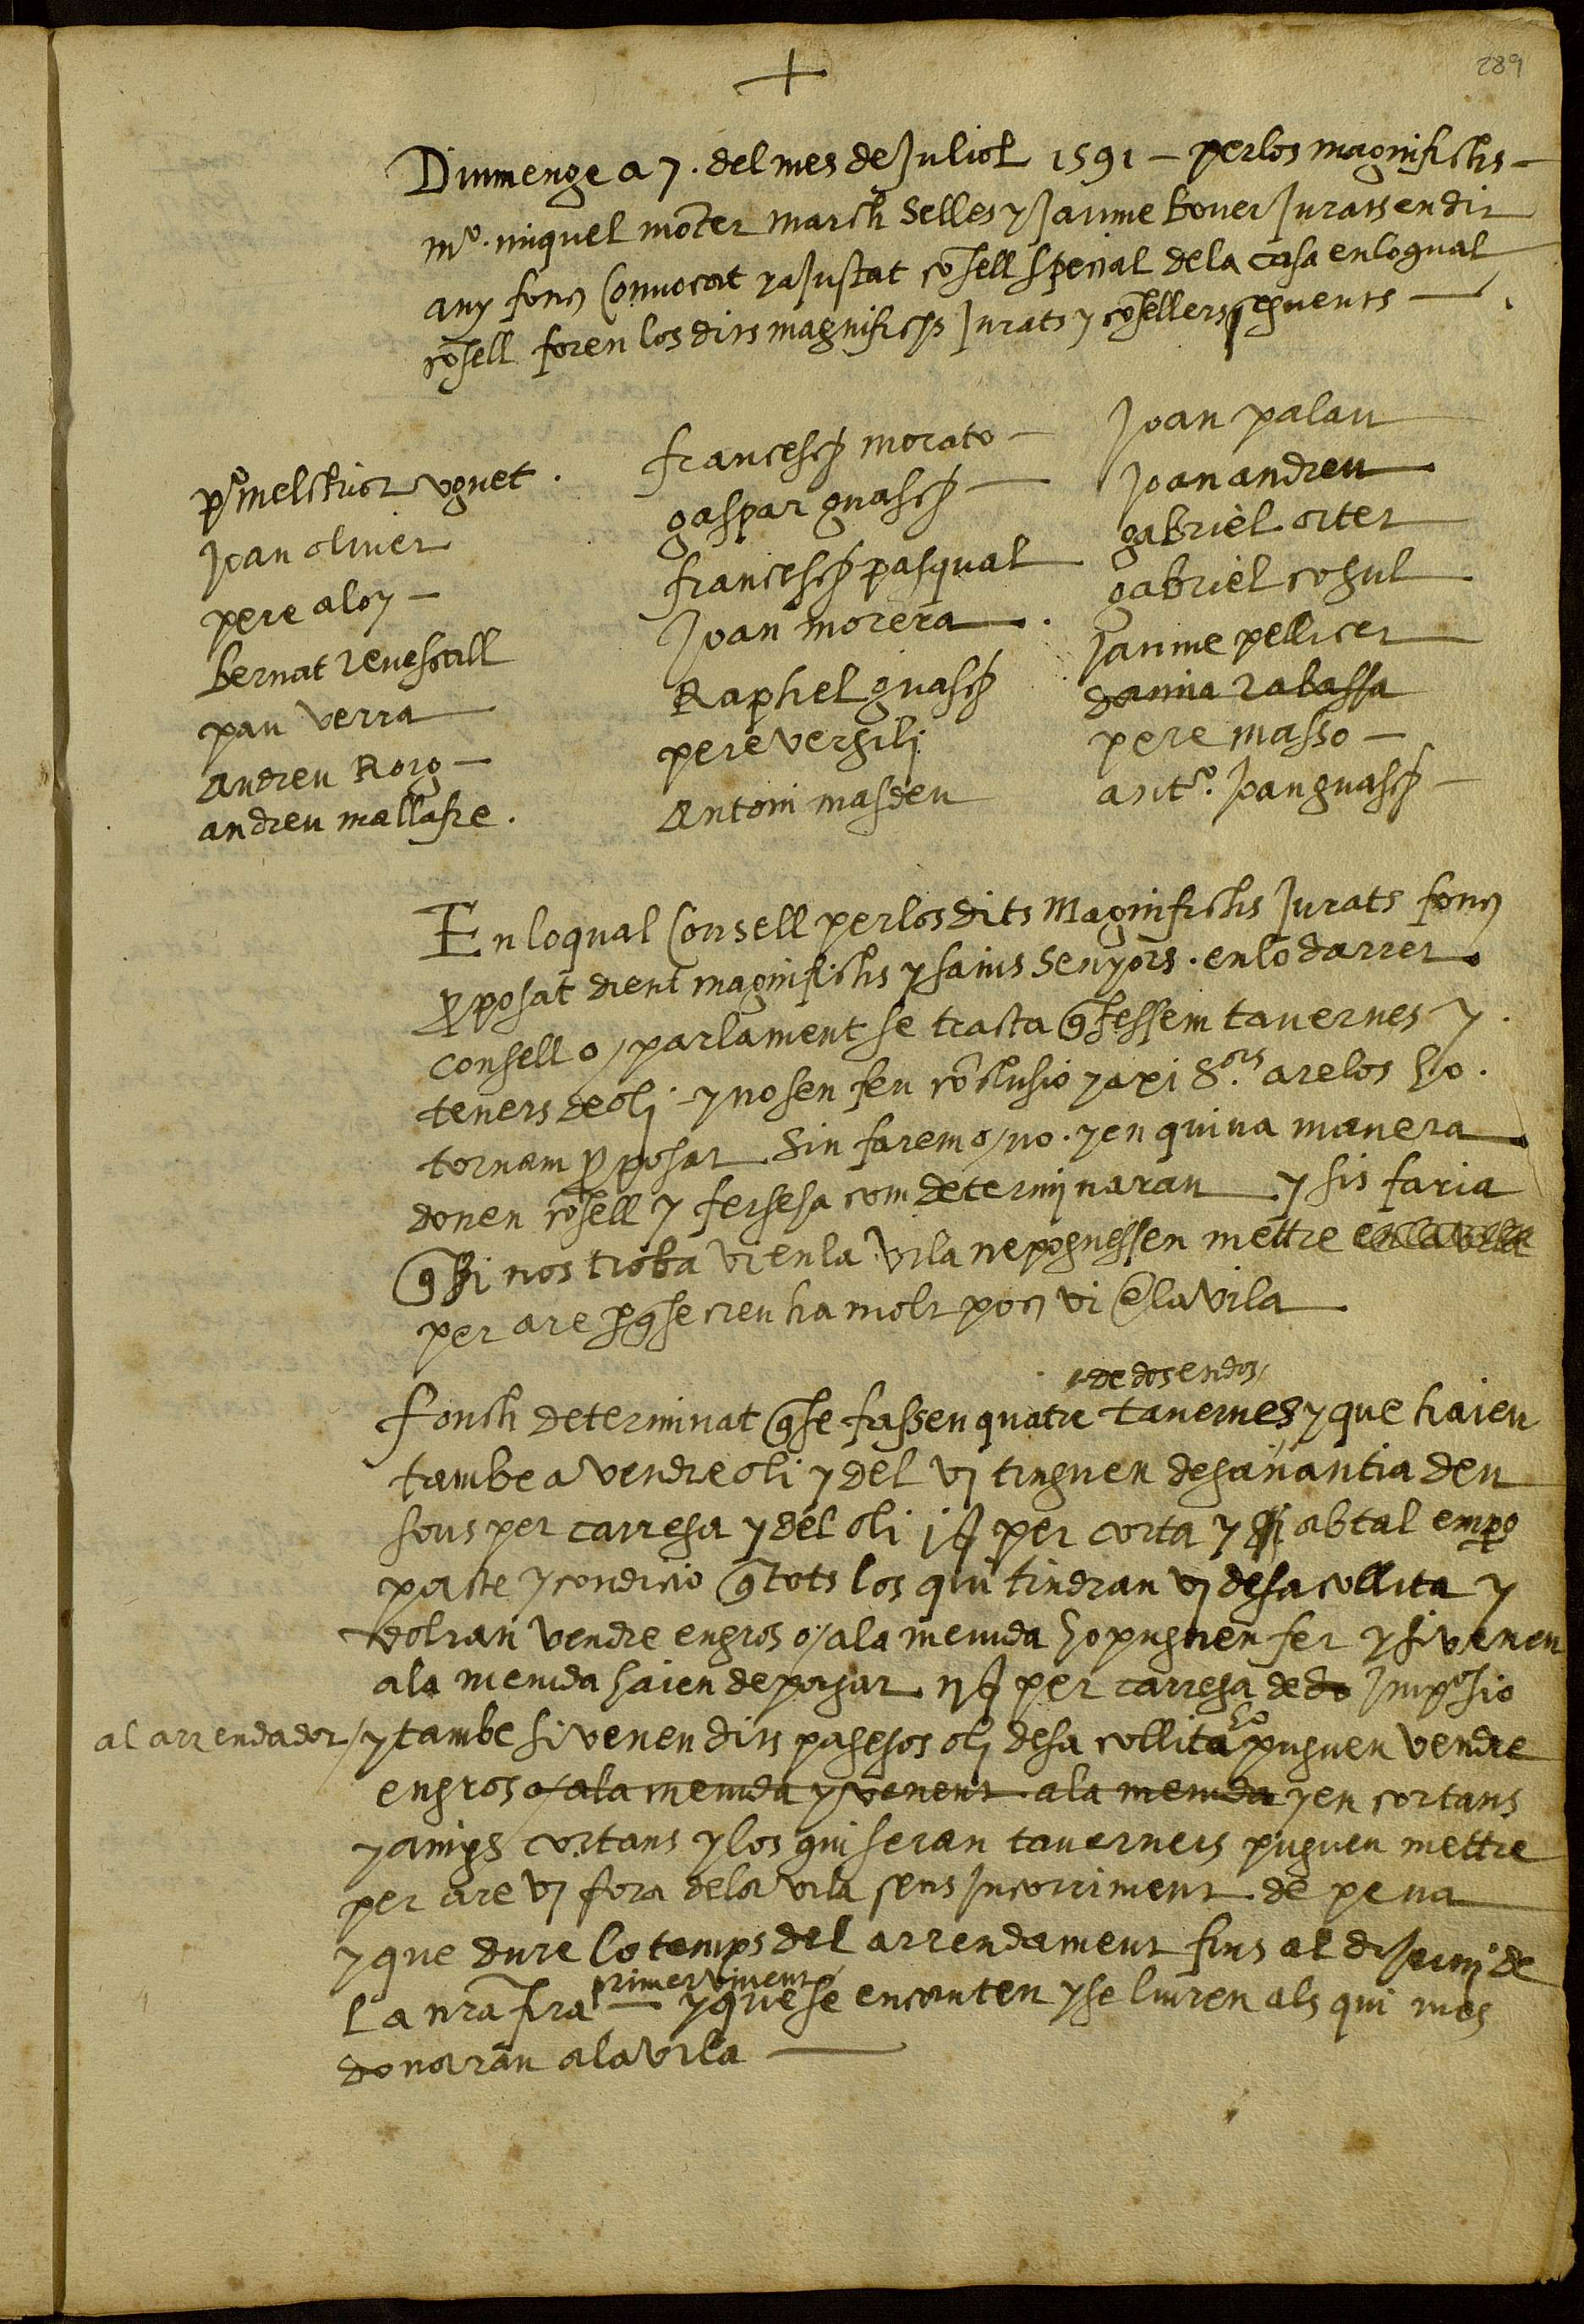 289
+
Diumenge a 7. del mes de Juliol 1591 – per los magnifichs –
mº. miquel moter march Selles y Jaume bover Jurats en dit
any fonc Convocat y aJustat cõsell special de la casa en lo qual
cõsell foren los dits magnifichs Jurats y cõsellers seguents –
pº melchior uguet .
Joan oliver
pere aloy –
bernat revescall
pau verra
andreu Roig –
andreu mallafre .
francesch morato –
gaspar guasch –
francesch pasqual
Joan morera .
Raphel guasch
pere vergili
Antoni masdeu
Joan palau
Joan andreu
gabriel orter
gabriel cosul
Jaume pellicer
damia rabassa
pere masso –
antº. Joan guasch –
En lo qual Consell per los dits Magnifichs Jurats fonc
pposat dient magnifichs y savis Senyors . en lo darrer
consell o / parlament se tracta q fessem tavernes y .
teners de oli – y no sen feu cõclusio y axi Sors. are los ho .
tornam pposar Sin farem o / no . y en quina manera
donen cõsell y fersesa com determinaran y sis faria
q si nos troba vi en la vila ne poguessen mettre en la vila
per are pq se creu ha molt poc vi e la vila
de dos en dos
fonch determinat q se fassen quatre tavernes y que haien
tambe a vendre oli y del vi tinguen de ganantia deu
sous per carrega y del oli j ſ per corta y ab tal empo
pacte y condicio q tots los qui tindran vi de sa collita y
volran vendre engros o / a la menuda ho puguen fer y si venen
a la menuda haien de pagar ij ſ per carrega de do imposio
al arrendador / y tambe si venen dits pagesos oli de sa collita ho puguen vendre
engros o / a la menuda y venent a la menuda y en cortans
y amigs cortans y los qui seran taverners puguen mettre
per are vi fora de la vila sens incorriment de pena
y que dure lo temps del arrendament fins al di de
primer vinent
la nra fira – y que se encanten y se liuren als qui mes
donaran a la vila –